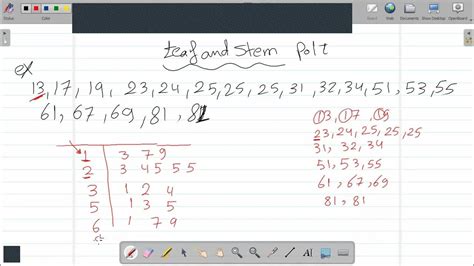 Leaf and Stem Polt
ex
13, 17, 19, 23, 24, 25, 25, 25, 31, 32, 34, 51, 53, 55
61, 67, 69, 81, 81
13, 17, 19
23, 24, 25, 25, 25
31, 32, 34
51, 53, 55
61, 67, 69
81, 81
1 | 3 7 9
2 | 3 4 5 5 5
3 | 1 2 4
5 | 1 3 5
6 | 1 7 9